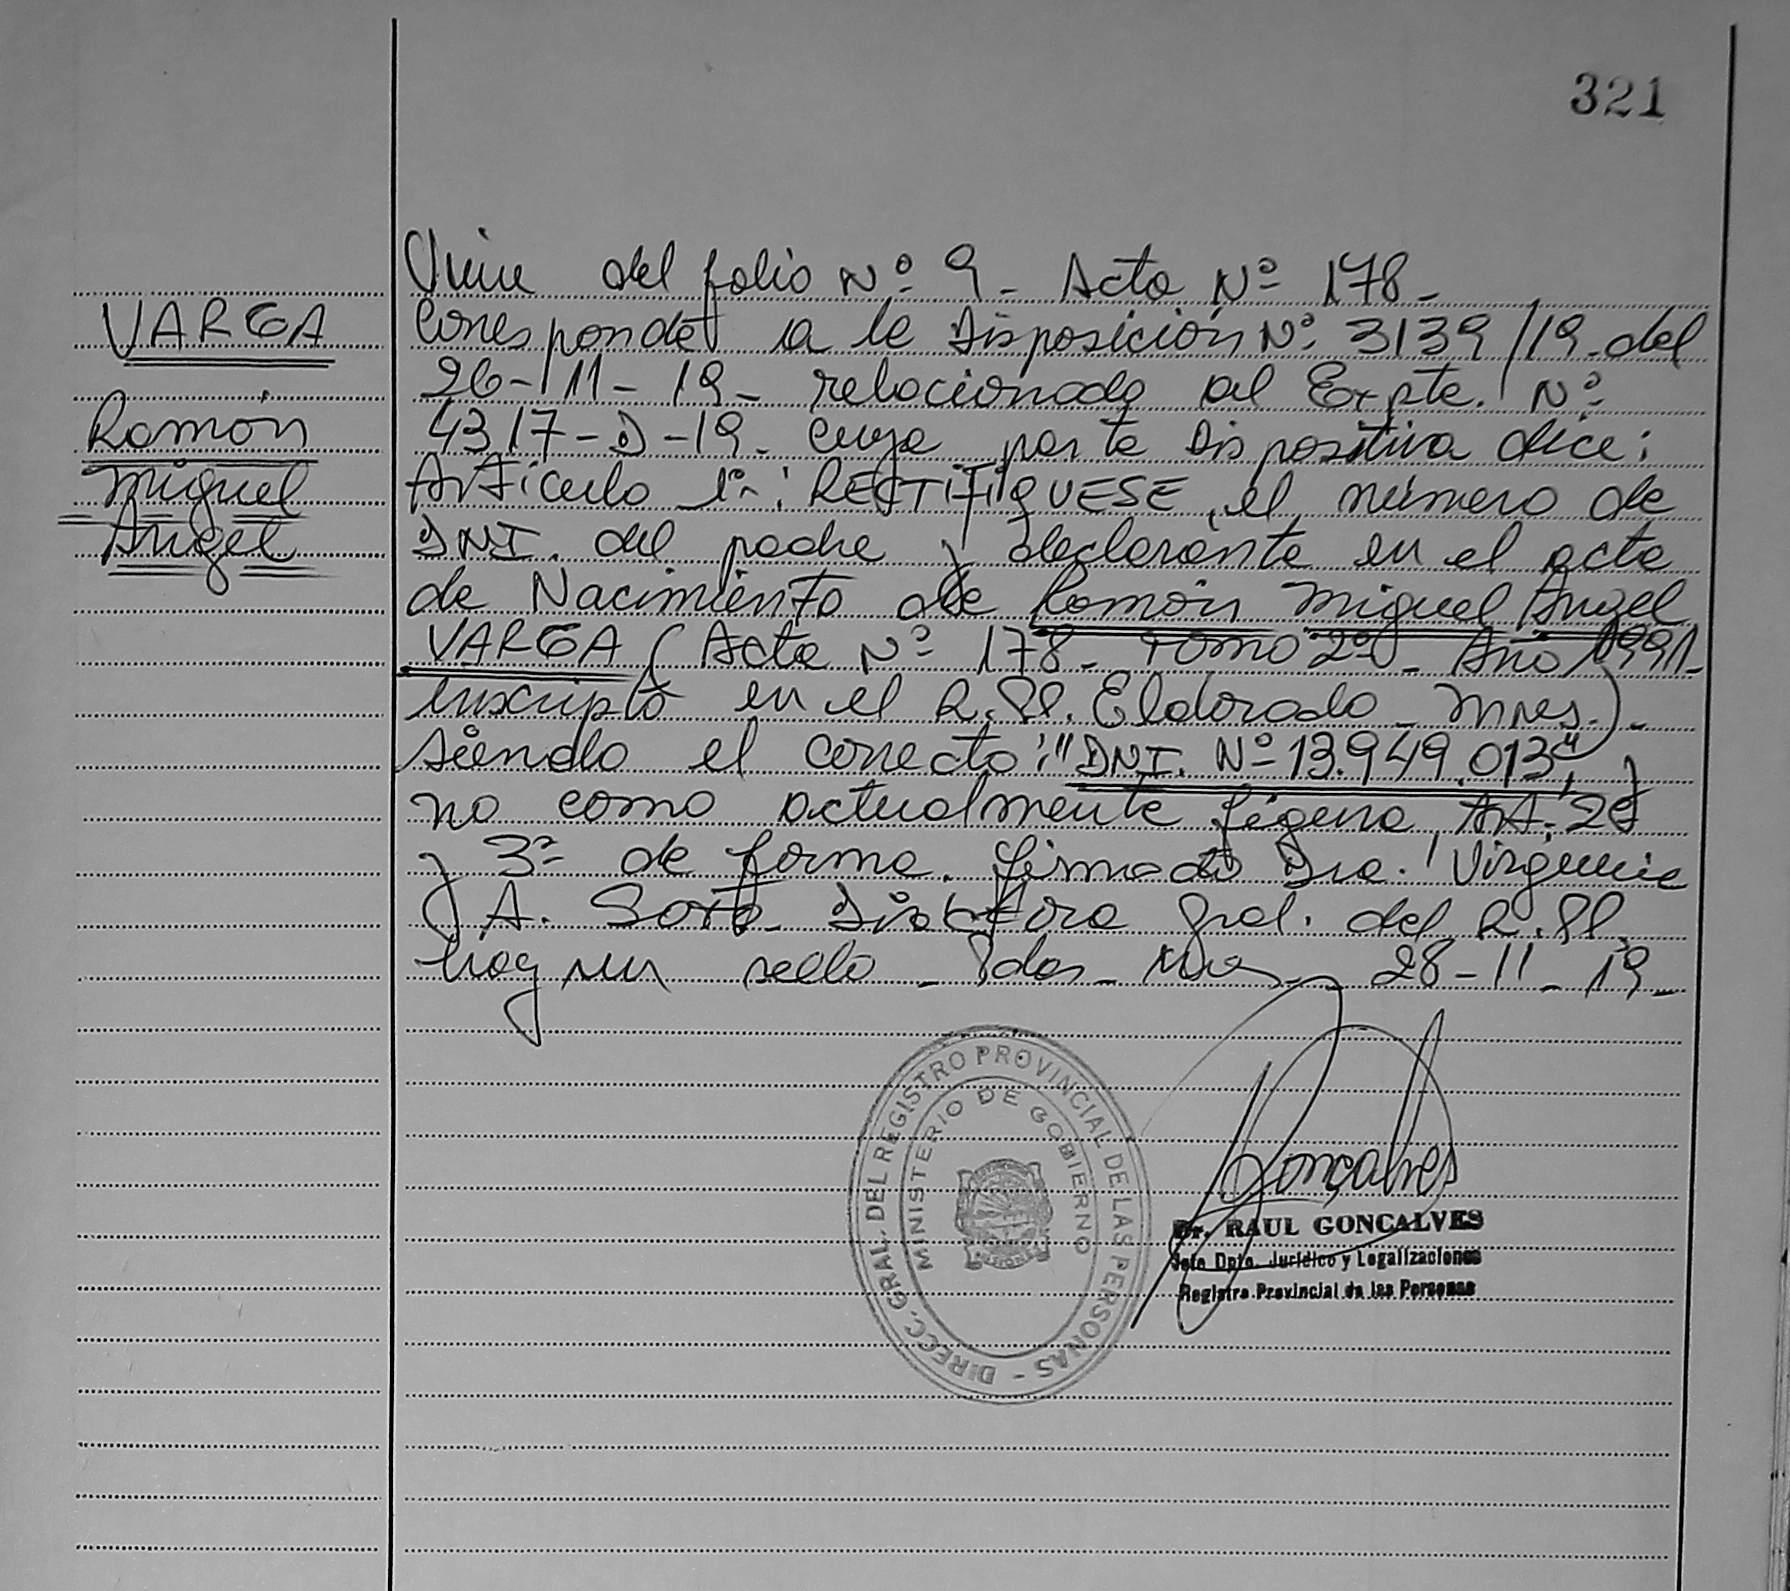 321
VARGA
Ramón
Miguel
Angel
Viene del folio Nº 9 - Acta Nº 178 -
Corresponde a la Disposición Nº 3139/19 del
26-11-19- relacionado al Expte. Nº
4317-D-19- cuya parte dispositiva dice:
Artículo 1º: RECTIFIQUESE, el número de
DNI. del padre y declarante en el acta
de Nacimiento de Ramón Miguel Angel
VARGA (Acta Nº 178- Tomo 2º- Año 1991-
inscripto en el R.P. Eldorado - Mnes.)-
siendo el correcto: "DNI. Nº 13.949.013", y
no como actualmente figura, Art. 2º
y 3º de forma. firmado Dra. Virginia
A. Soto Directora Gral. del R.P.
hay un sello - Pdas - Mnes - 28-11-19-
DIRECC. GRAL. DEL REGISTRO PROVINCIAL DE LAS PERSONAS -
MINISTERIO DE GOBIERNO
Gonçalves
Dr. RAUL GONCALVES
Jefe Dpto. Jurídico y Legalizaciones
Registro Provincial de las Personas